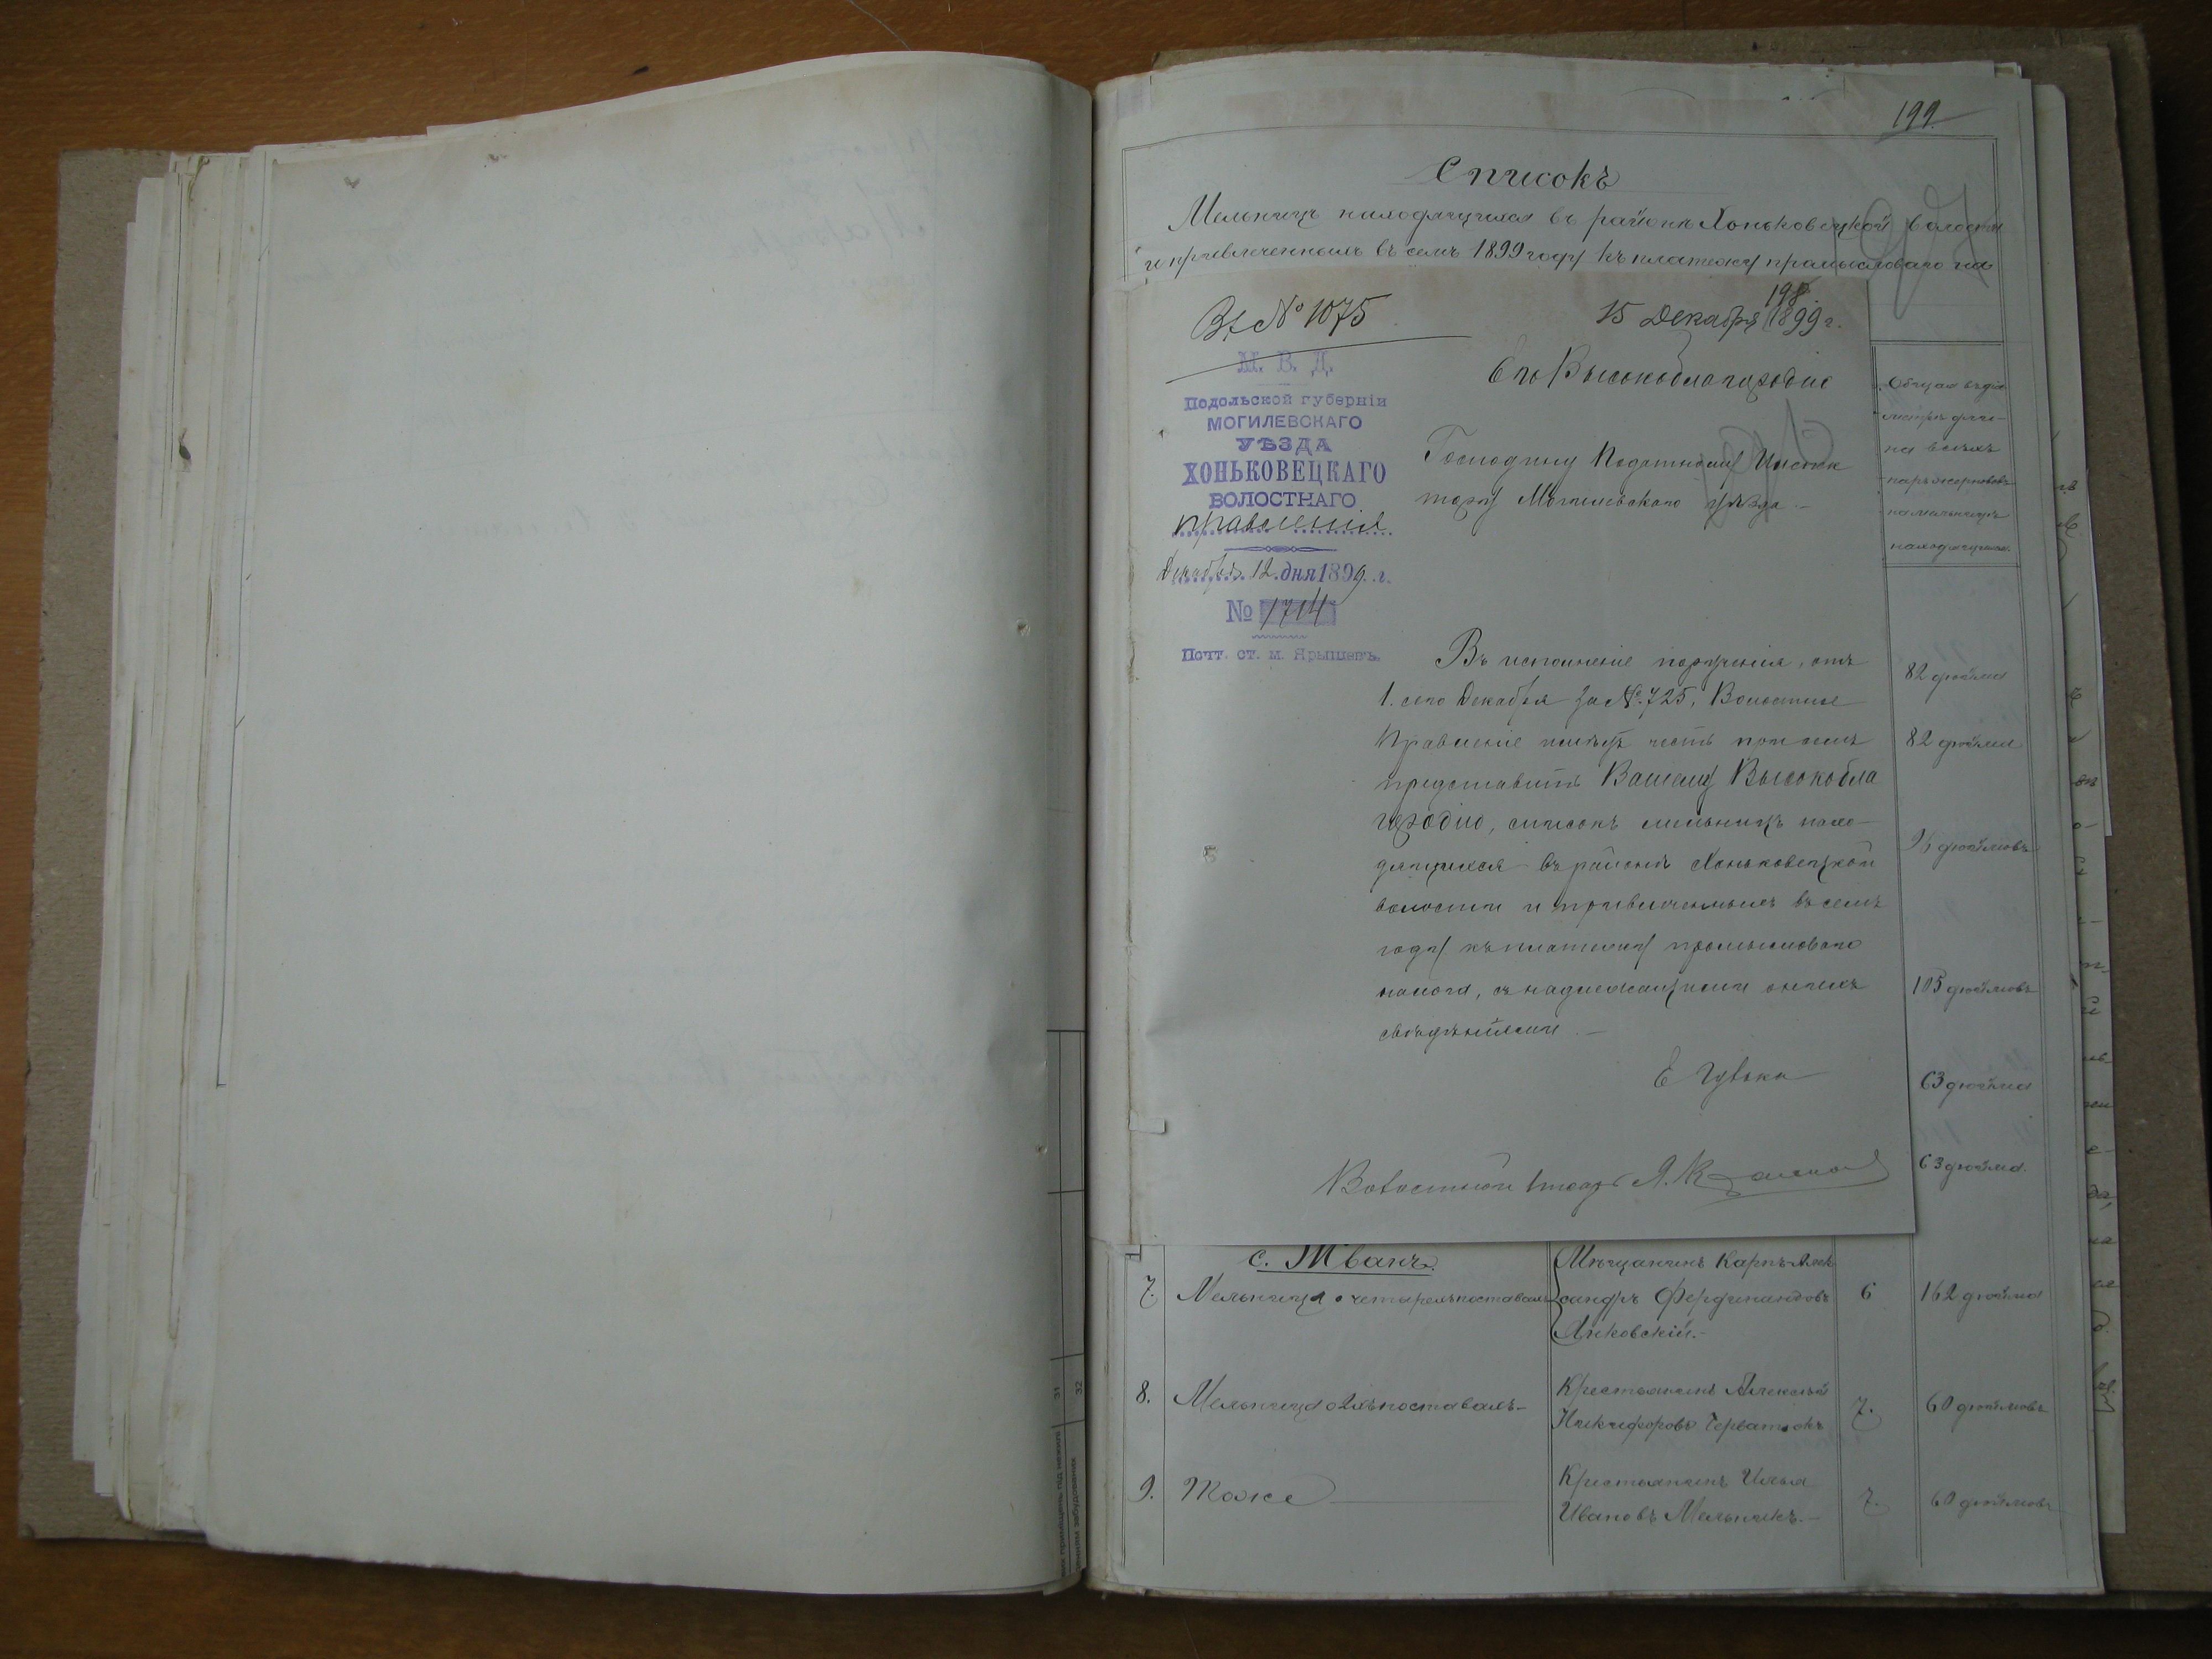 199.
Списокъ
Мельницъ находящихся въ районѣ Хоньковецкой волости
и привлеченныхъ въ семъ 1899 году къ платежу промысловаго на
Вх № 1075
198.
15 Декабря 1899 г.
М. В. Д.
Подольской губерніи
МОГИЛЕВСКАГО
УѢЗДА
ХОНЬКОВЕЦКАГО
ВОЛОСТНАГО
правленія
Декабря 12 дня 1899 г.
№ 1714
Почт. ст. м. Ярышевъ.
Его Высокоблагородію
Господину Податному Инспек
тору Могилевскаго уѣзда.—
Въ исполненіе порученія, отъ
1. сего Декабря за № 725, Волостное
Правленіе имѣетъ честь при семъ
представить Вашему Высокобла
городію, списокъ мельницъ нахо-
дящихся въ районѣ Хоньковецкой
волости и привлеченныхъ въ семъ
году къ платежу промысловаго
налога, съ надлежащими о нихъ
свѣдѣніями.—
Волостной
Общая въ діа-
метрѣ дли-
на всѣхъ
жернововъ
на мельницѣ
находящихся.
82 дюйма
82 дюйма
91 дюймовъ
105 дюймовъ
63 дюйма
63 дюйма.
с. Жванъ.
7. Мельница о четырехъ поставахъ Мѣщанинъ Карпъ-Алек
сандръ Фердинандовъ 6 162 дюйма
Янковскій.—
8. Мельница о 2хъ поставахъ— Крестьянинъ Алексѣй
Никифоровъ Черватюкъ 7. 60 дюймовъ
9. Тоже Крестьянинъ Илья
Ивановъ Мельникъ.— 7. 60 дюймовъ
31
32